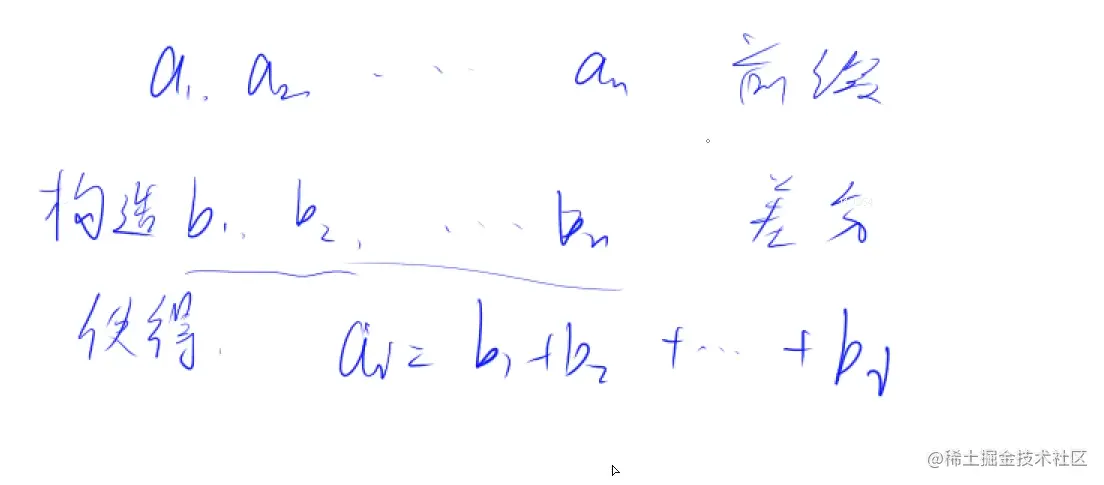 a₁, a₂ ...... aₙ 前缀
构造 b₁, b₂, ...... bₙ 差分
使得. aᵢ = b₁ + b₂ + ... + bᵢ
@稀土掘金技术社区